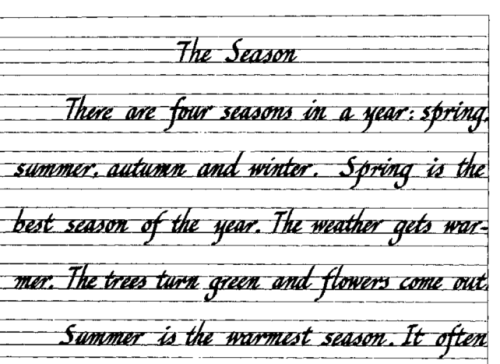 The Season
There are four seasons in a year: spring,
summer, autumn and winter. Spring is the
best season of the year. The weather gets war-
mer. The trees turn green and flowers come out.
Summer is the warmest season. It often